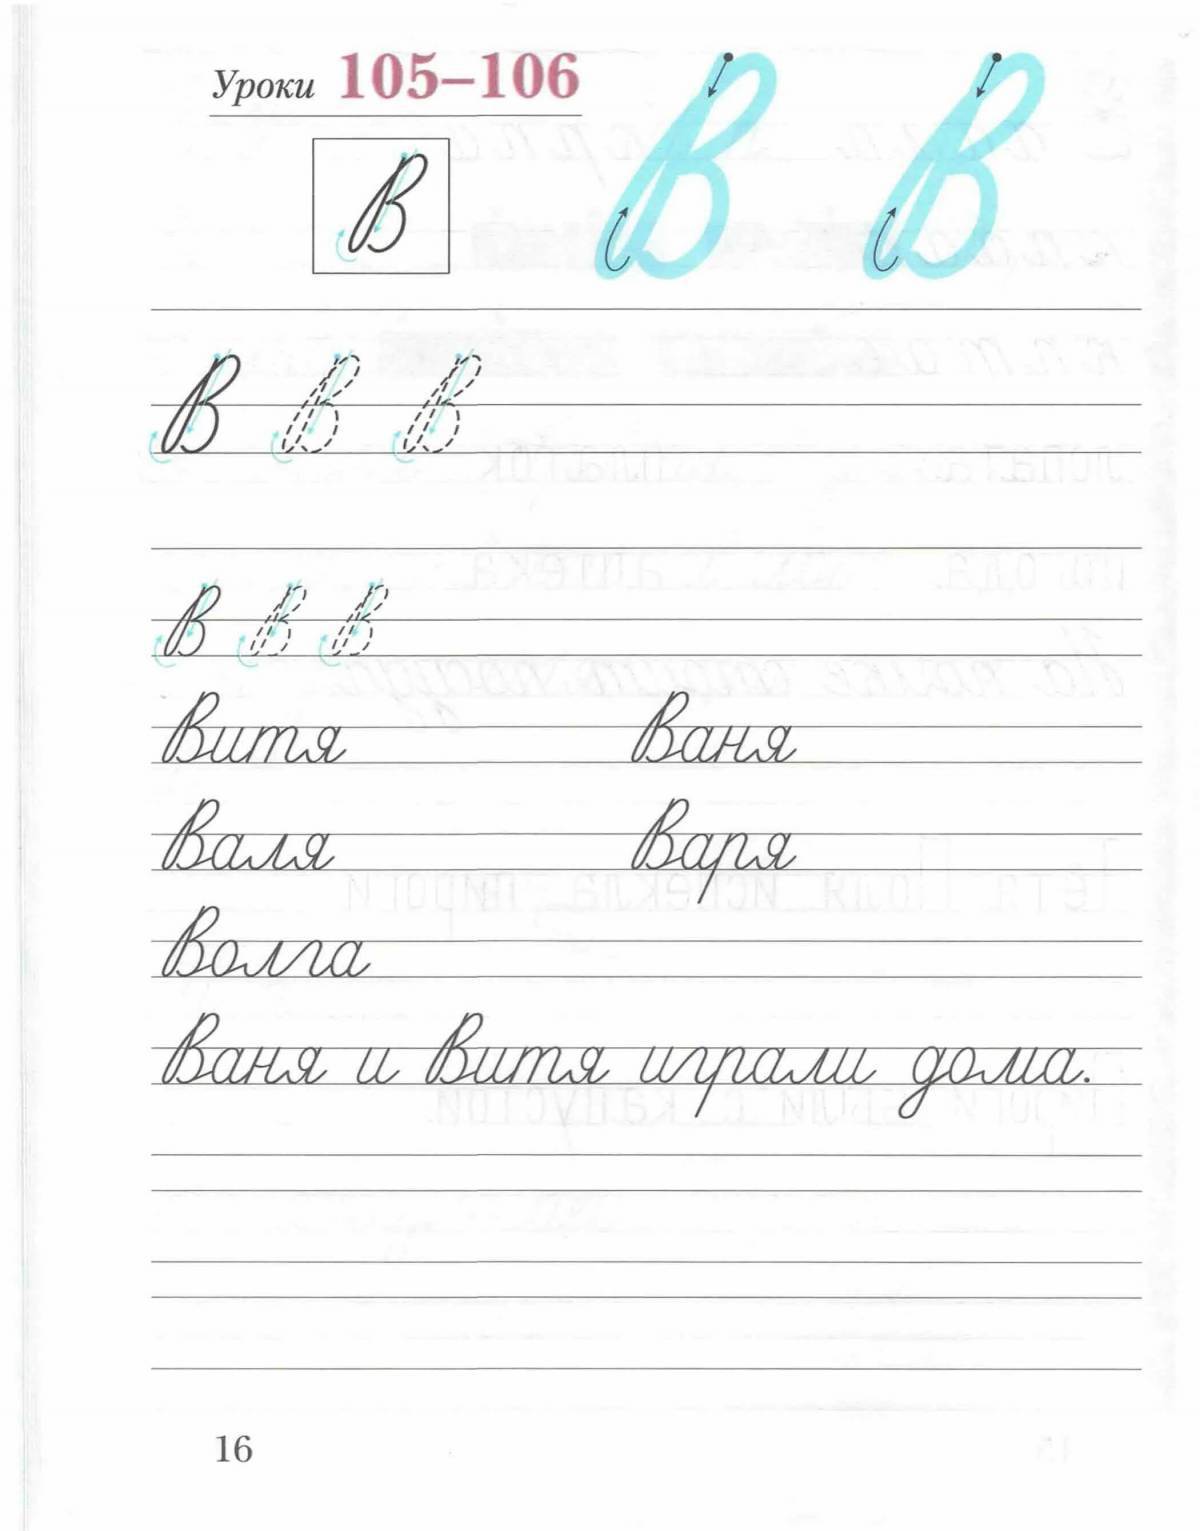 Уроки 105–106
В В
В
В В В
В В В
Витя Ваня
Валя Варя
Волга
Ваня и Витя играли дома.
16